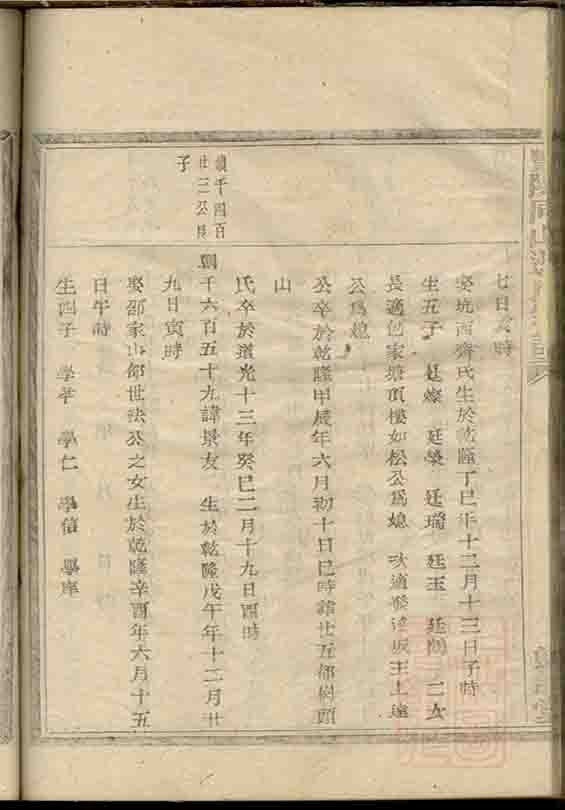 七日亥時
娶坑西齊氏生於乾隆丁巳年十二月十三日子時
生五子 廷燦 廷榮 廷瑞 廷玉 廷 二女
長適包家塘頂樓如松公爲媳 次適 王上達
公爲媳
公卒於乾隆甲辰年六月初十日巳時 廿五都樹頭
山
氏卒於道光十三年癸巳二月十九日酉時
千四百
廿二公長
子
朝千六百五十九諱景友 生於乾隆戊午年十二月廿
九日寅時
娶邵家山邵世法公之女生於乾隆辛酉年六月十五
日午時
生四子 學孝 學仁 學信 學庠